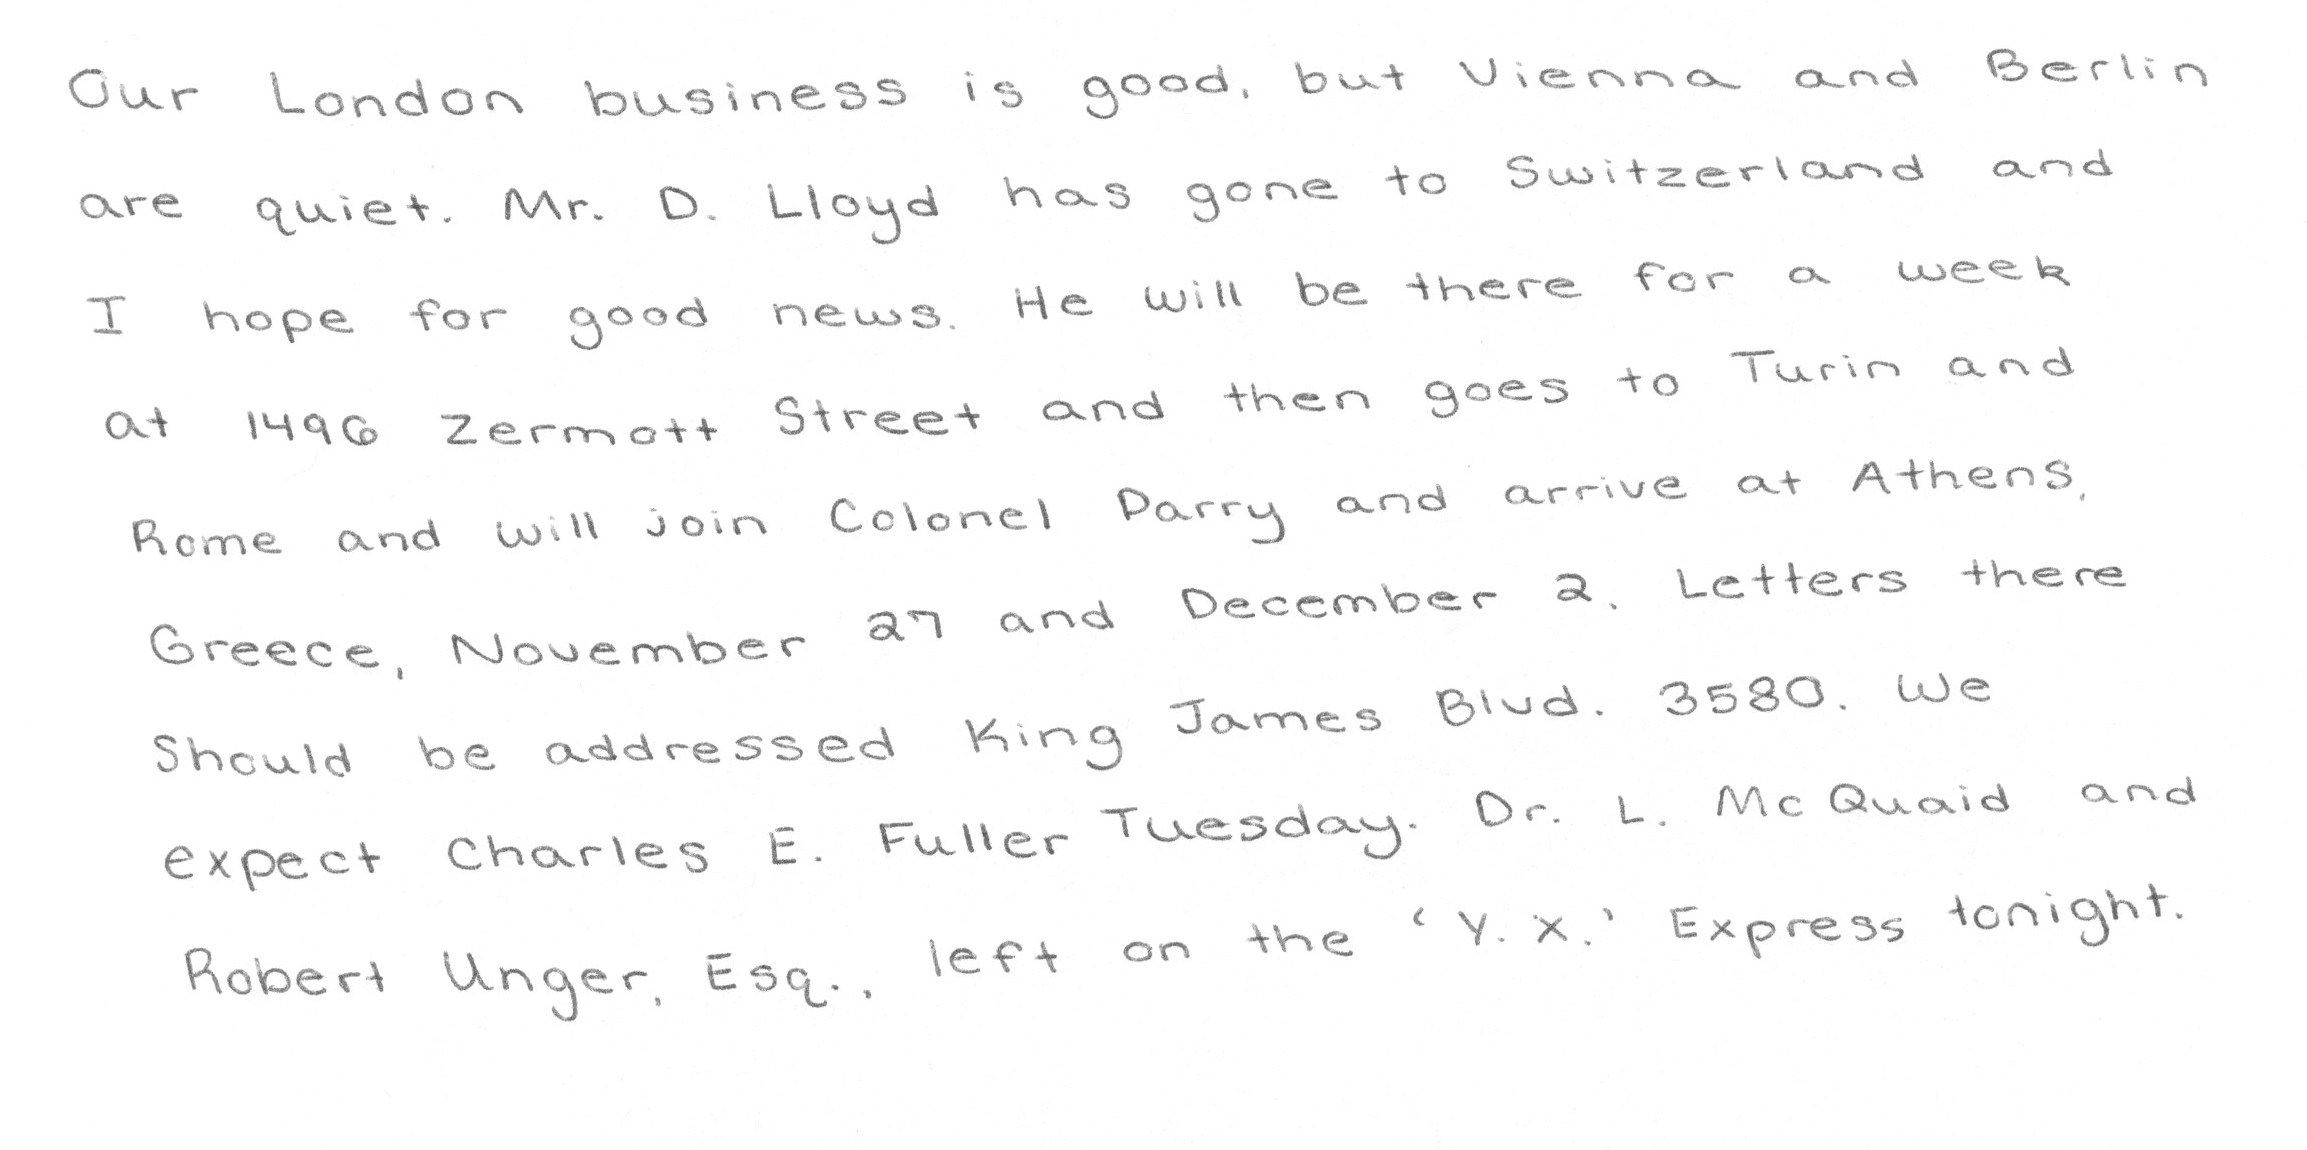 Our London business is good, but Vienna and Berlin
are quiet. Mr. D. Lloyd has gone to Switzerland and
I hope for good news. He will be there for a week
at 1496 Zermott Street and then goes to Turin and
Rome and will join Colonel Parry and arrive at Athens,
Greece, November 27 and December 2. Letters there
Should be addressed King James Blvd. 3580. We
expect Charles E. Fuller Tuesday. Dr. L. Mc Quaid and
Robert Unger, Esq., left on the ' Y. X.' Express tonight.